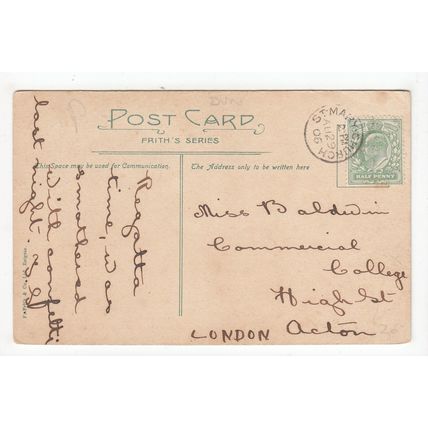 POST CARD
FRITH'S SERIES
This Space may be used for Communication.
The Address only to be written here
ST MARYCHURCH
AU 29
06
HALF PENNY
Regatta
time, was
smothered
with confetti
last night.
Miss Baldwin
Commercial
College
High St
Acton
LONDON
F. FRITH & Co., Ltd., Reigate.